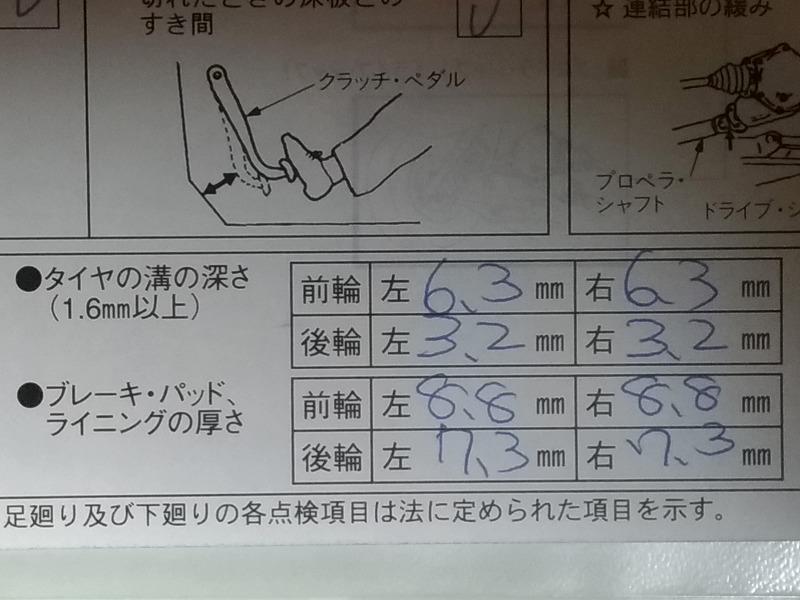 すき間
☆ 連結部の緩み
クラッチ・ペダル
プロペラ・
シャフト
ドライブ・シ
●タイヤの溝の深さ
(1.6mm以上)
前輪 左 6.3 mm 右 6.3 mm
後輪 左 3.2 mm 右 3.2 mm
●ブレーキ・パッド、
ライニングの厚さ
前輪 左 8.8 mm 右 8.8 mm
後輪 左 7.3 mm 右 7.3 mm
足廻り及び下廻りの各点検項目は法に定められた項目を示す。